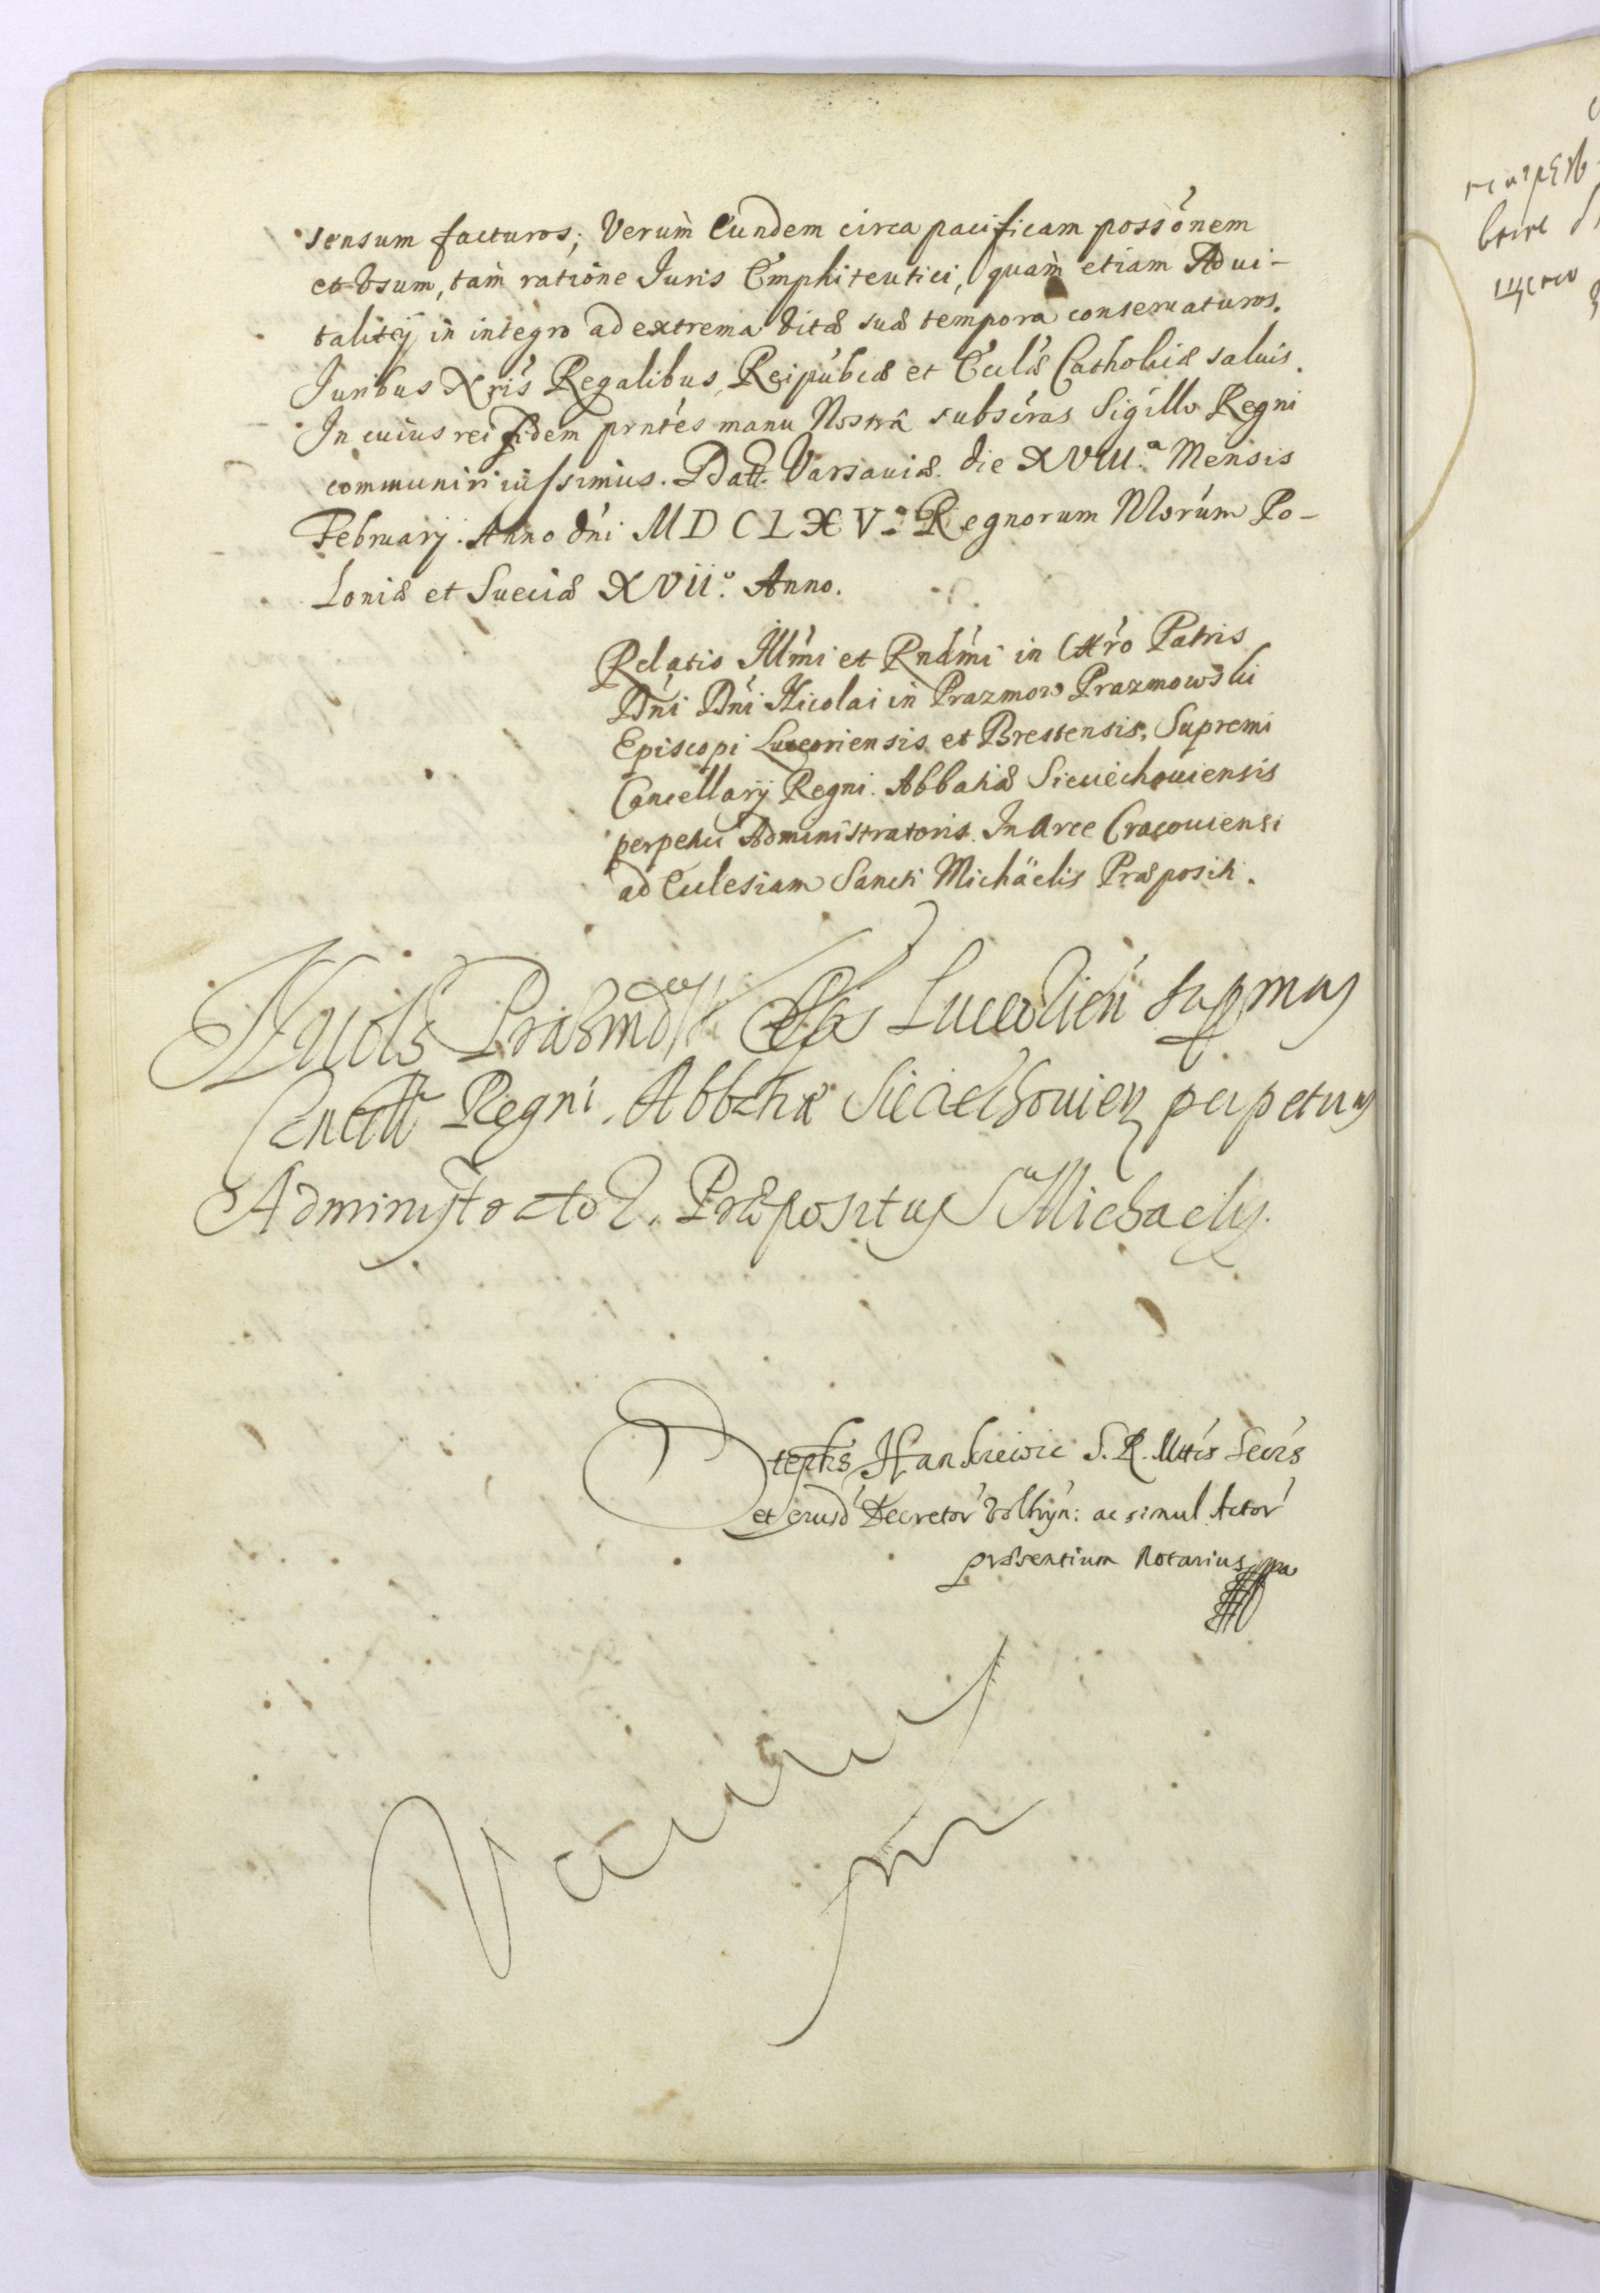 sensum facturos; Verum̀ Eundem circa pacificam possónem
et Vsum, tam̀ ratione Iuris Emphiteutici, quam̀ etiam Advi-
talitij in integro ad extrema vitæ suæ tempora conservaturos.
Iuribus Nris Regalibus, Reipúbcæ et Ecclæ Catholicæ saluis.
In cuius rei fidem prntés manu Nostrâ subscras Sigillo Regni
communiri iussimus. Datt. Varsauiæ. die XVIII.ª Mensis
February. Anno dni MDCLXV.º Regnorum Nlorúm Po-
loniæ et Sueciæ XVII.º Anno.
Relatio Illmi et Rndmi in Chro Patris
Dni Dni Nicolai in Prazmow Prazmowski
Episcopi Luceoriensis et Brestensis, Supremi
Cancellarij Regni. Abbatiæ Sieciechouiensis
perpetui Administratoris. In Arce Cracouiensi
ad Ecclesiam Sancti Michäelis Præpositi.
Nicols Prazmowski Eps Luceorien supmus
Cancell Regni. Abbatiæ Sieciechouien perpetuus
Administrator. Præpositus S Michaelis.
Stephs Hankiewic S. R. Mttis Secrs
et eiusd Decretor Volhyn: ac simul Actor
præsentium Notarius mpa